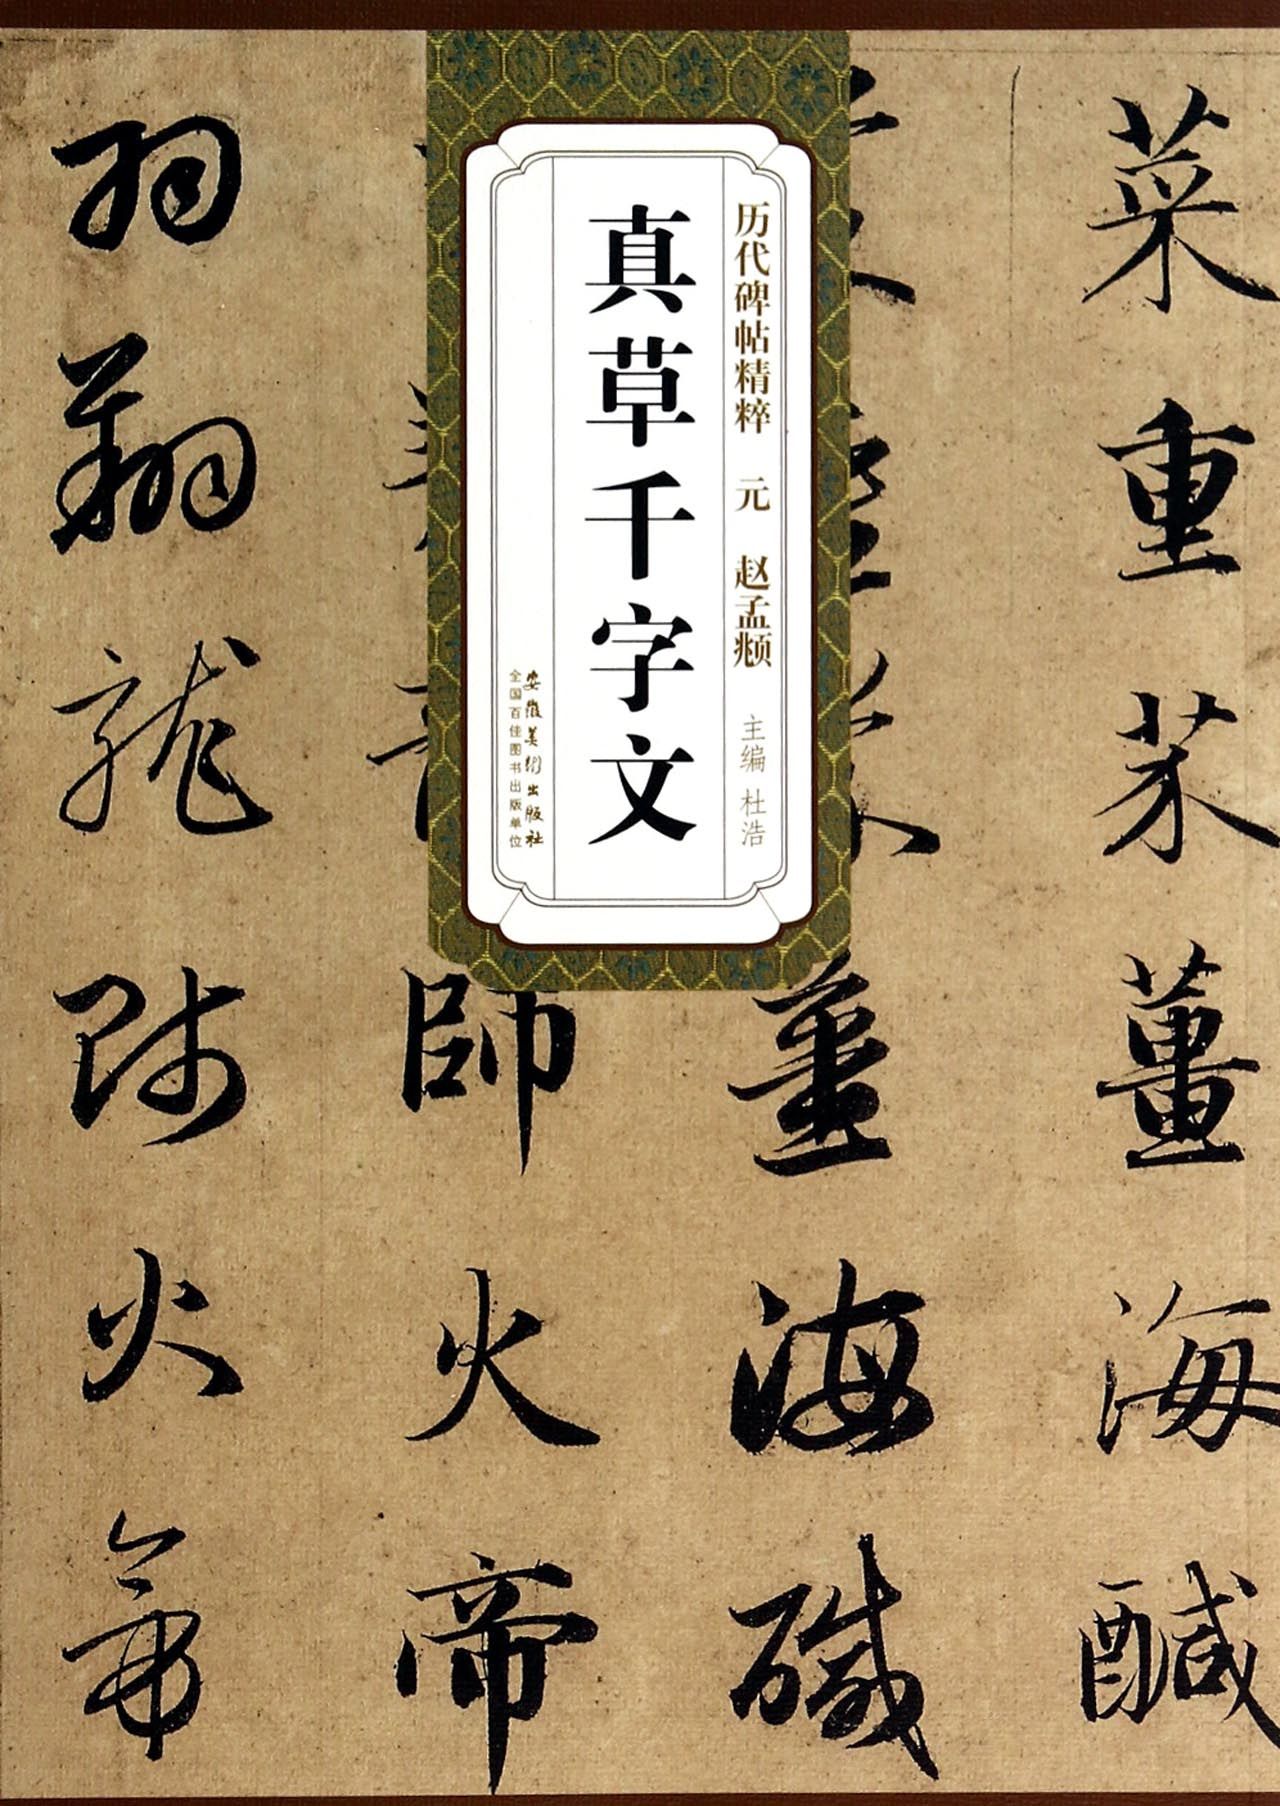 菜重芥薑海醎
薑海醎
師火帝
羽翔龍師火帝
历代碑帖精粹 元 赵孟頫
主编 杜浩
真草千字文
安徽美术出版社
全国百佳图书出版单位